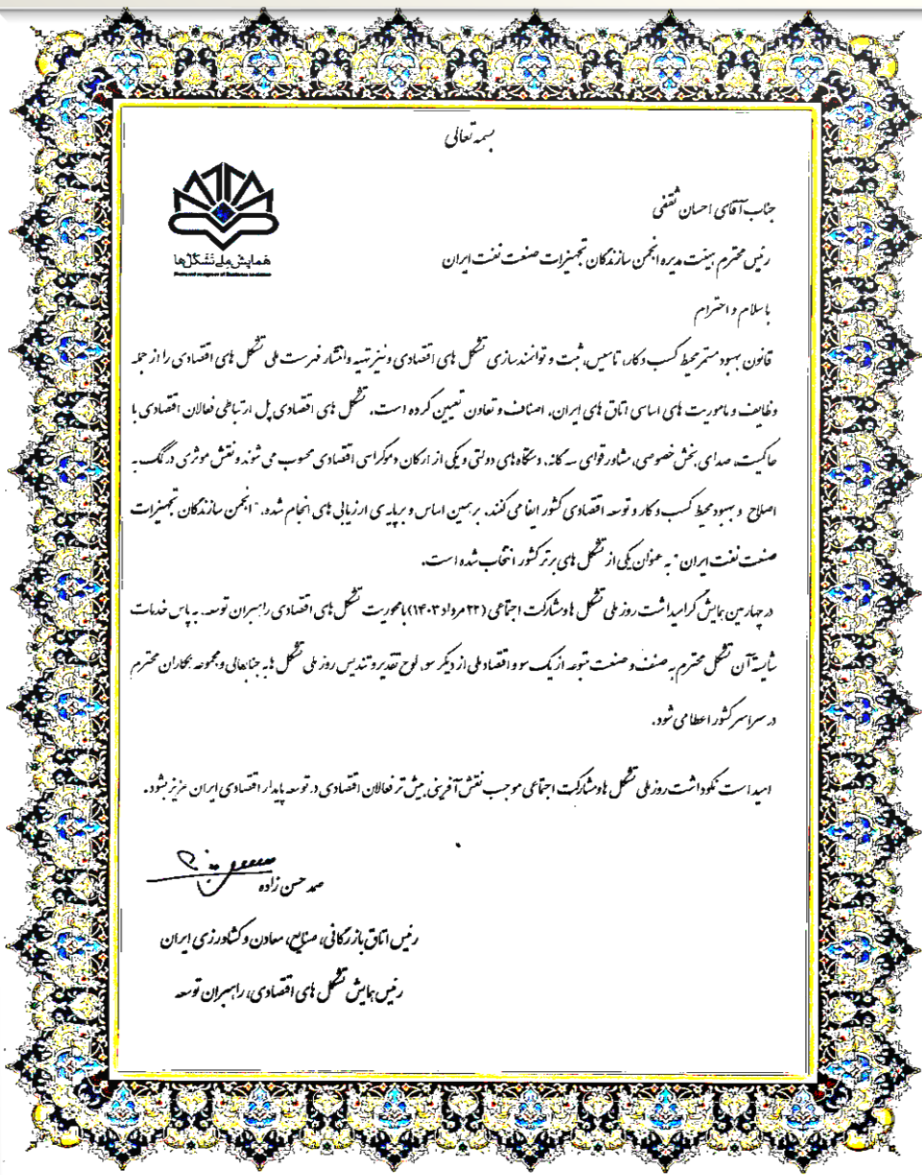 بسمه تعالی
همایش ملی تشکل‌ها
جناب آقای احسان ثقفی
رئیس محترم هیئت مدیره انجمن سازندگان تجهیزات صنعت نفت ایران
با سلام و احترام
قانون بهبود مستمر محیط کسب و کار، تاسیس، ثبت و توانمندسازی تشکل های اقتصادی و نیز تهیه و انتشار فهرست ملی تشکل های اقتصادی را از جمله
وظایف و ماموریت های اساسی اتاق های ایران، اصناف و تعاون تعیین کرده است. تشکل های اقتصادی پل ارتباطی فعالان اقتصادی با
حاکمیت، صدای بخش خصوصی، مشاور قوای سه گانه، دستگاه های دولتی و یکی از ارکان دموکراسی اقتصادی محسوب می شوند و نقش موثری در کمک به
اصلاح و بهبود محیط کسب و کار و توسعه اقتصادی کشور ایفا می کنند. بر همین اساس و بر پایه ی ارزیابی های انجام شده، "انجمن سازندگان تجهیزات
صنعت نفت ایران" به عنوان یکی از تشکل های برتر کشور انتخاب شده است.
در چهارمین همایش گرامیداشت روز ملی تشکل ها و مشارکت اجتماعی (۲۲ مرداد ۱۴۰۳) با محوریت تشکل های اقتصادی راهبران توسعه، به پاس خدمات
شایسته آن تشکل محترم به صنف و صنعت متبوعه از یک سو و اقتصاد ملی از دیگر سو، لوح تقدیر و تندیس روز ملی تشکل ها به جنابعالی و مجموعه همکاران محترم
در سراسر کشور اعطا می شود.
امید است نکوداشت روز ملی تشکل ها و مشارکت اجتماعی موجب نقش آفرینی بیش تر فعالان اقتصادی در توسعه پایدار اقتصادی ایران عزیز بشود.
صمد حسن زاده
رئیس اتاق بازرگانی، صنایع، معادن و کشاورزی ایران
رئیس همایش تشکل های اقتصادی، راهبران توسعه